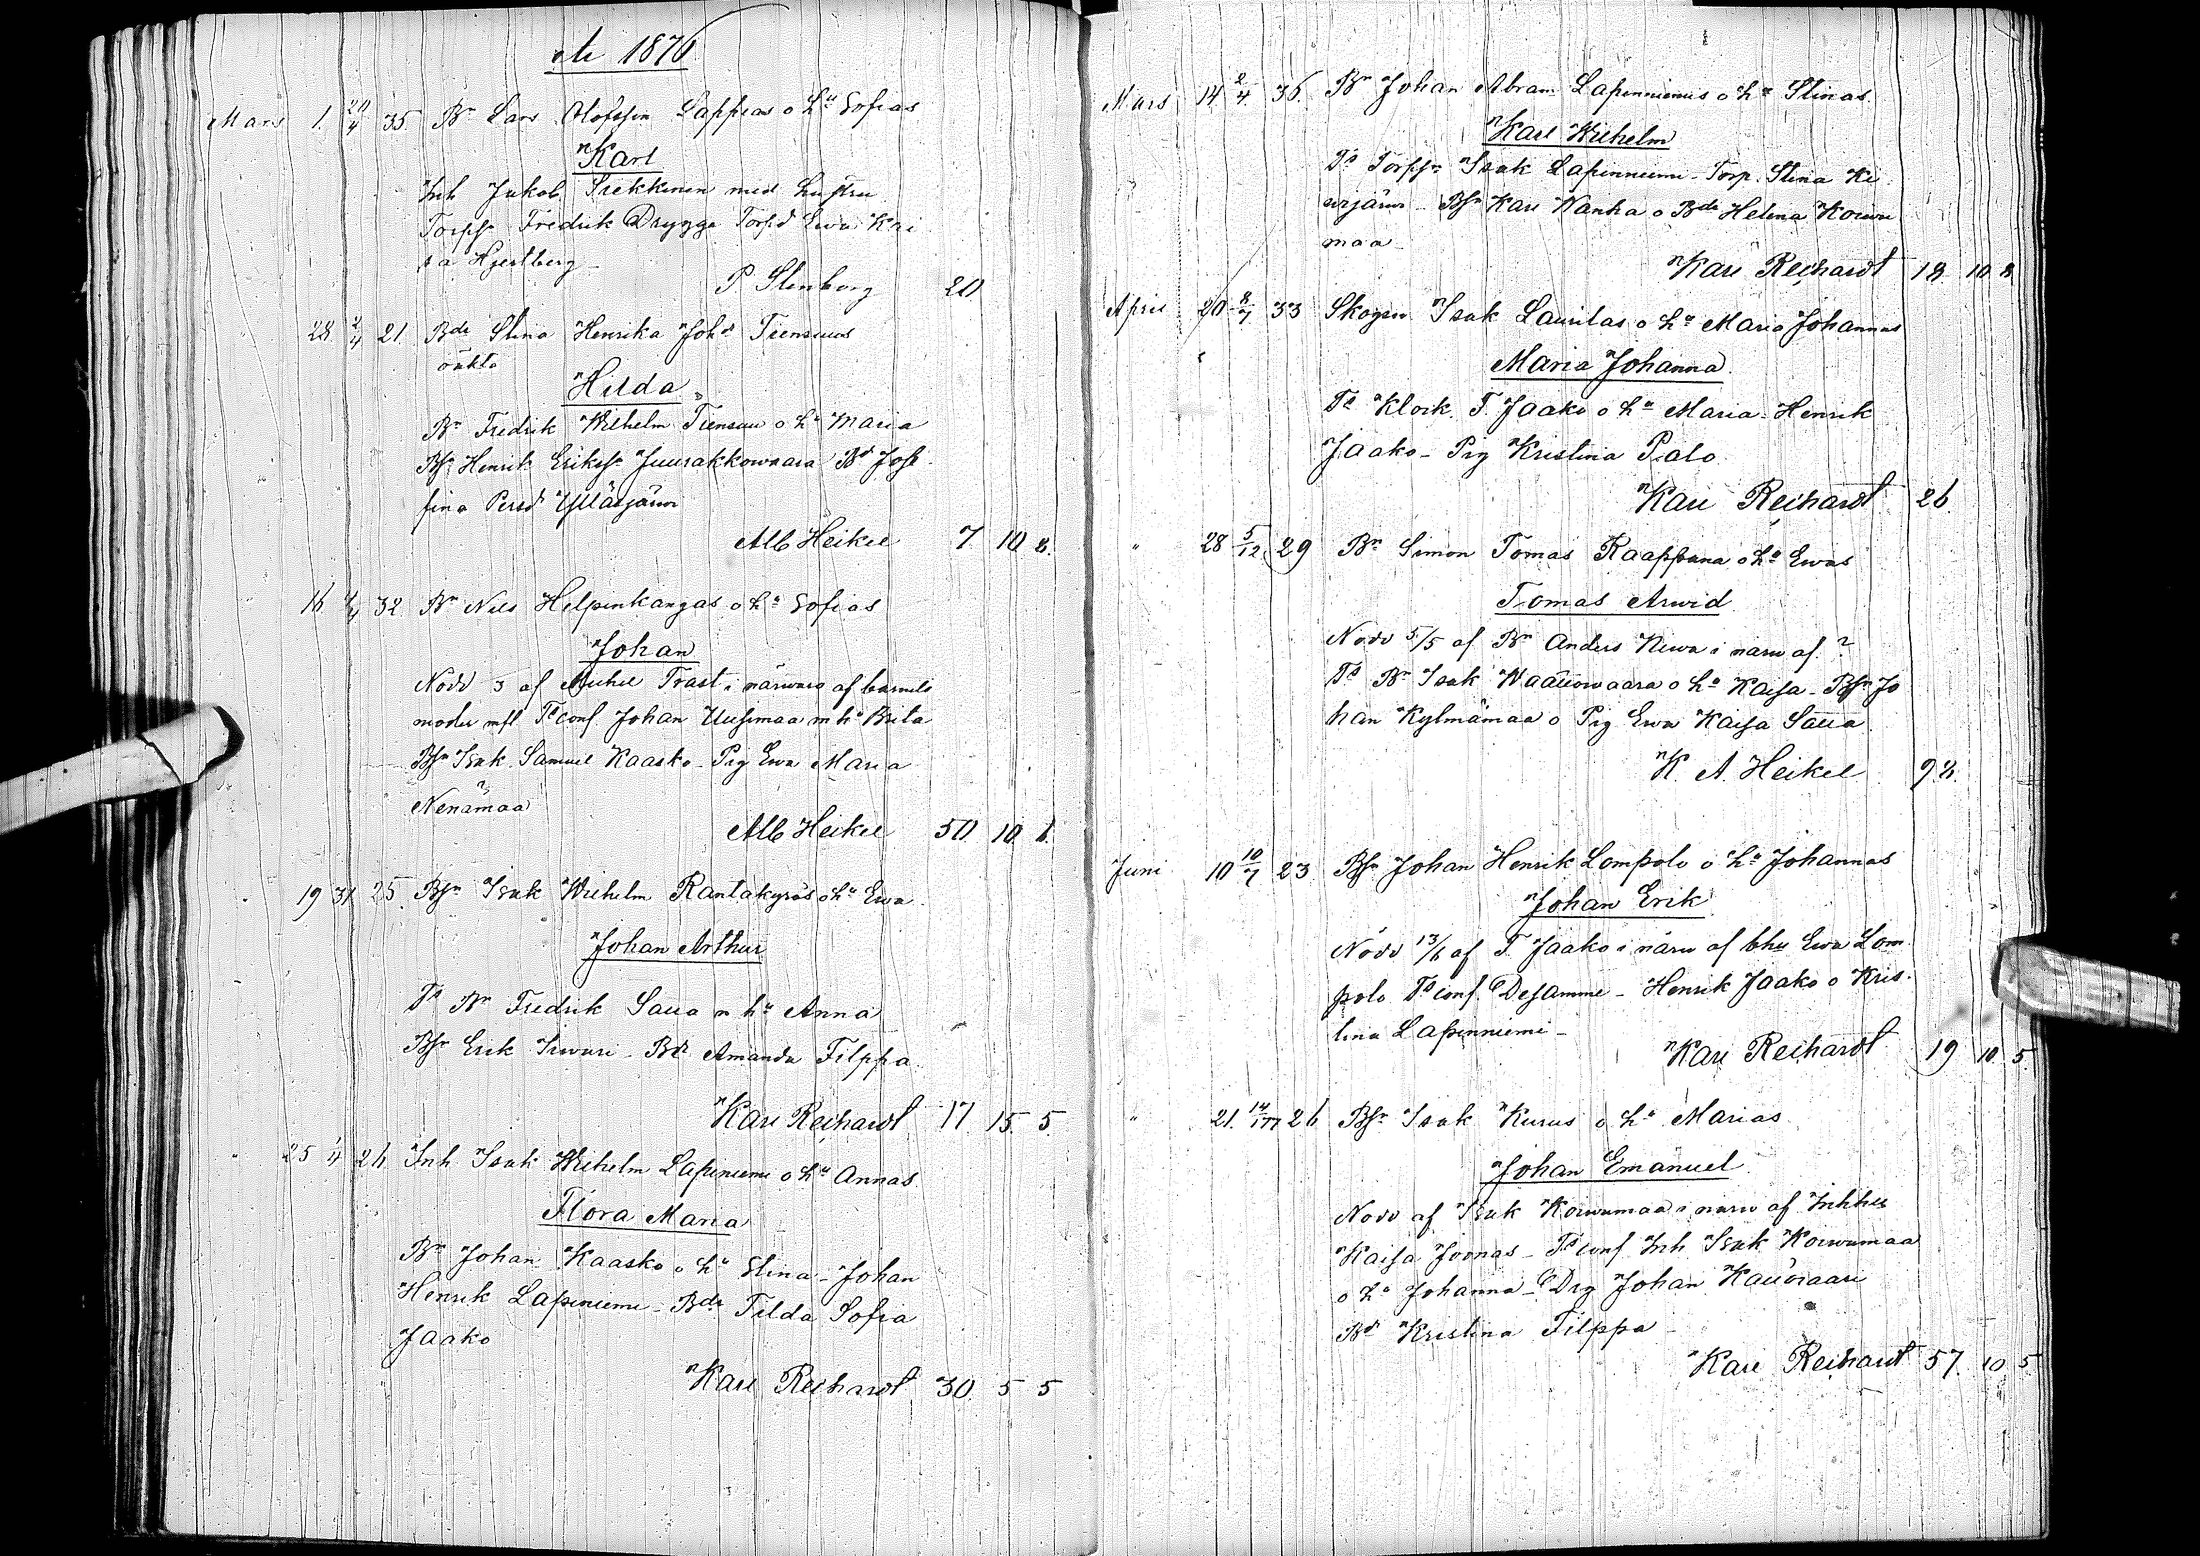 År 1876
Mars 1. 20/4 35. Bn Lars Olofsson Lappeas o hu Sofias
Karl
Inh Jakob Siekkinen med hustru
Torpsn Fredrik Drygge Torpd Ewa Kri
sa Hjertberg
P. Stenborg 20
28 2/4 21 Bdr Stina Henrika Johdr Tiensuus
oäkta
Hilda
Bn Fredrik Wilhelm Tiensuu o hu Maria
Bsn Henrik Erikssn Juurakkowaara Bd Jose
fina Persdr Yllärjärwi
Alb Heikel 7 10 8.
16 4/4 32 Bn Nils Helpinkangas o hu Sofias
Johan
Nödd 3 af Mickel Trast i närwaro af barnets
moder mfl Ts conf Johan Uusimaa m hu Brita
Bsn Isak Samuel Kaasko - Pig Ewa Maria
Nenämaa
Alb Heikel 50 10 6.
19 31 25. Bsn Isak Wilhelm Rantakyrös o hu Ewa
Johan Arthur
Ts Bn Fredrik Saua m hu Anna
Bsn Erik Siwari - Bdr Amanda Filppa
Karl Reichardt 17 15. 5.
" 25 4 26 Inh Isak Wilhelm Lapinniemi o hu Annas
Flora Maria
Bn Johan Kaasko o hu Stina - Johan
Henrik Lapinniemi - Bdr Tilda Sofia
Jaako
Karl Reichardt 30 5 5
Mars 14. 2/4. 36. Bn Johan Abram Lapinniemis o hu Stinas.
Karl Wilhelm
Ts Torpsn Isak Lapinniemi - Torp. Stina Ki
erjärwi - Bsn Karl Wanha o Bdr Helena Koiwu
maa
Karl Reichardt 18 10 8
April 20 8/7 33 Skogsw Isak Laurilas o hu Maria Johannas
Maria Johanna
Ts Klock. F. Jaako o hu Maria - Henrik
Jaako - Pig Kristina Palo
Karl Reichardt 26.
" 28 5/12 29 Bn Simon Tomas Raappana o hu Ewas
Tomas Arwid
Nödd 5/5 af Bn Anders Niwa i närw af ?
Ts Bn Isak Waaliowaara o hu Kaisa - Bsn Jo
han Kylmämaa o Pig Ewa Kaisa Saua
K. A. Heikel 98.
Juni 10 10/7 23 Bsn Johan Henrik Lompolo o hu Johannas
Johan Erik
Nödd 13/6 af F Jaako i närw af bhu Ewa Lom
polo Ts conf. Desamme - Henrik Jaako o Kris
tina Lapinniemi -
Karl Reichardt 19 10 5.
" 21. 14/177 26 Bsn Isak Kurus o hu Marias
Johan Emanuel
Nödd af Isak Koiwumaa i närw af Inhhu
Kaisa Joonas - Ts conf Inh Isak Koiwumaa
o hu Johanna - Drg Johan
Bdr Kristina Filppa -
Karl Reichardt 57. 10 5